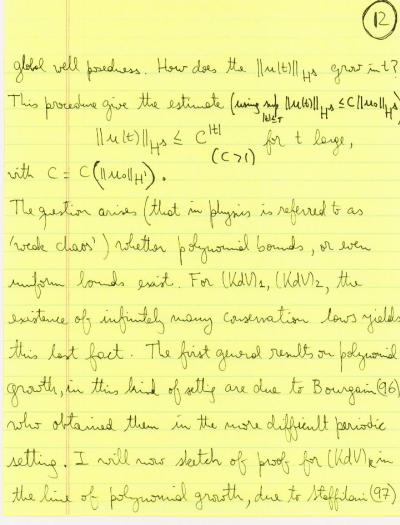 12
global well posedness. How does the ||u(t)||_{H^s} grow in t?
This procedure give the estimate (using sup_{|t|≤T} ||u(t)||_{H^s} ≤ C||u_0||_{H^s})
||u(t)||_{H^s} ≤ C^{|t|} for t large,
(C>1)
with C = C(||u_0||_{H^1}).
The question arises (that in physics is referred to as
'weak chaos') whether polynomial bounds, or even
uniform bounds exist. For (KdV)_1, (KdV)_2, the
existence of infinitely many conservation laws yields
this last fact. The first general results on polynomial
growth, in this kind of setting are due to Bourgain (96)
who obtained them in the more difficult periodic
setting. I will now sketch of proof for (KdV)_k in
the line of polynomial growth, due to Staffilani (97)